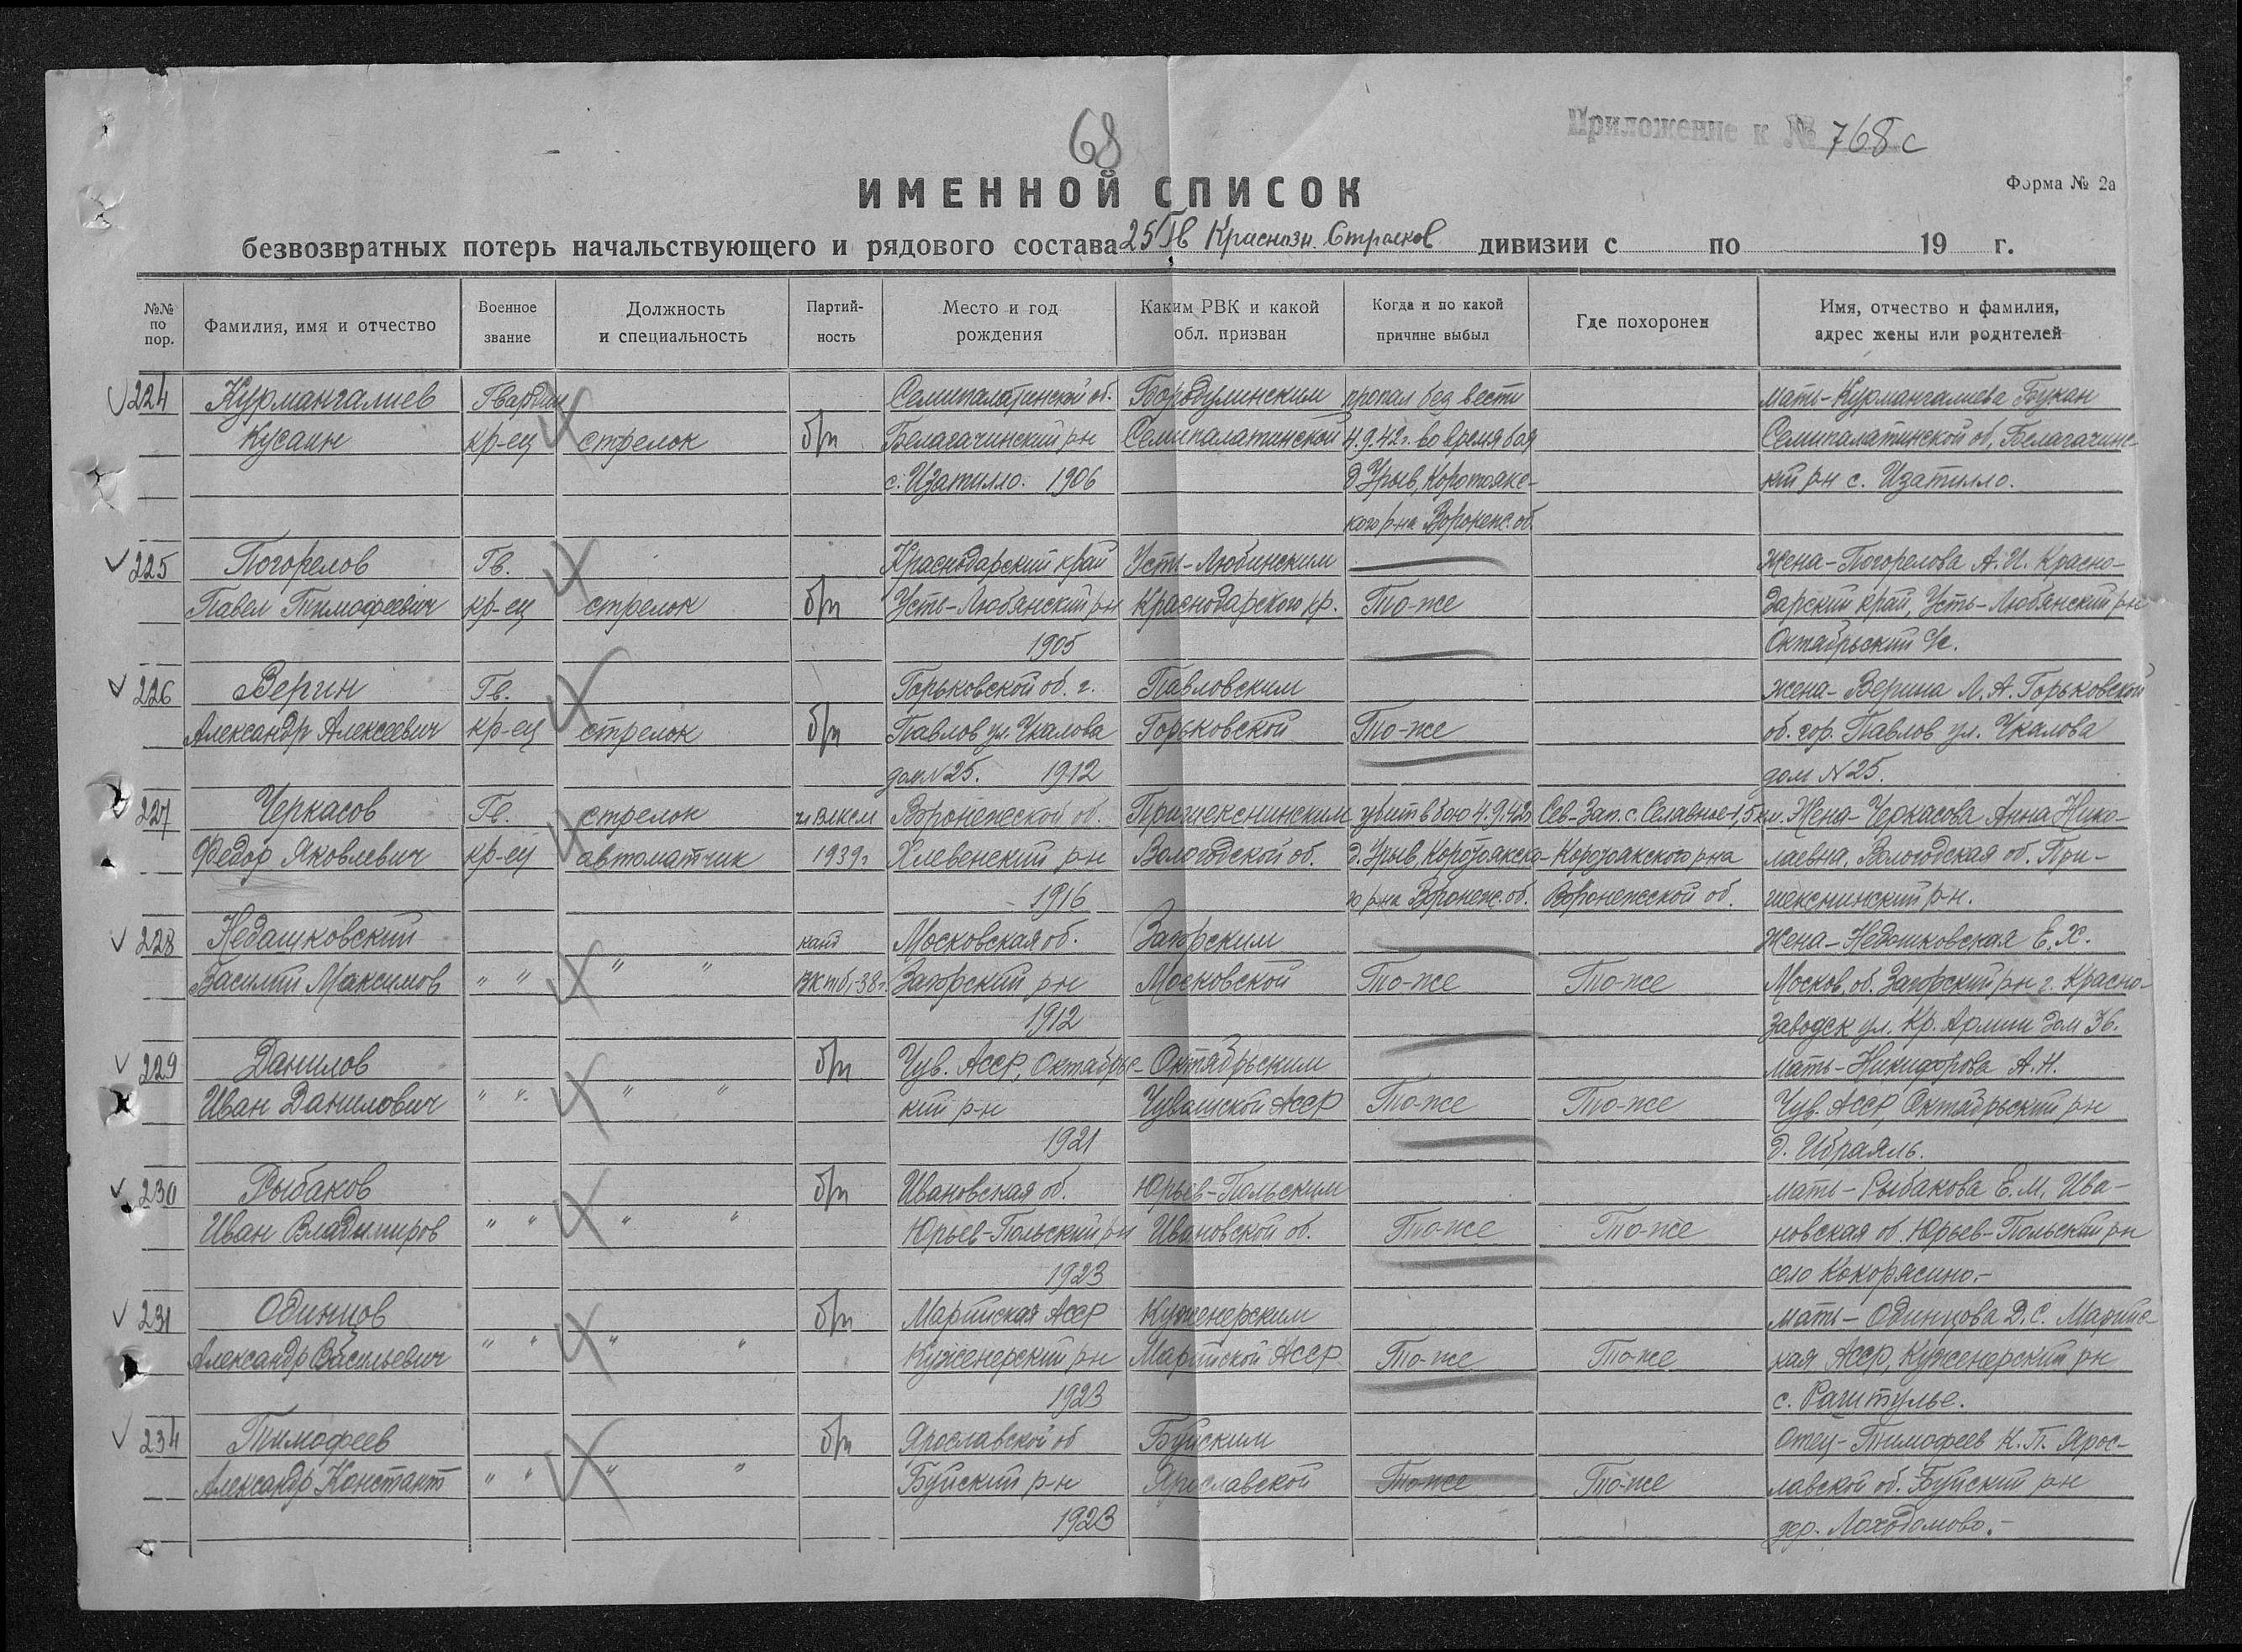 68
Приложение к № 768с
ИМЕННОЙ СПИСОК
Форма № 2а
безвозвратных потерь начальствующего и рядового состава 25 Гв Краснозн. Стрелков дивизии с по 19 г.
№№ по пор. Фамилия, имя и отчество Военное звание Должность и специальность Партийность Место и год рождения Каким РВК и какой обл. призван Когда и по какой причине выбыл Где похоронен Имя, отчество и фамилия, адрес жены или родителей
224 Курмангалиев Гвардии Семипалатинской об. Бородулинским пропал без вести мать-Курмангалиева Букан
Кусаин кр-ец стрелок б/п Белагачинский рн Семипалатинской 4.9.42г. во время боя Семипалатинской об, Белагачинс-
с. Изатилло. 1906 д Урыв, Коротоякс- кий рн с. Изатилло.
кого р-на Воронеж. об.
225 Погорелов Гв. Краснодарский край Усть-Любинским жена-Погорелова А.И. Красно-
Павел Тимофеевич кр-ец стрелок б/п Усть-Любянский рн Краснодарского кр. То-же дарский край, Усть-Любянский рн
1905 Октябрьский с/с.
226 Верин Гв. Горьковской об. г. Павловским жена-Верина Л.А. Горьковской
Александр Алексеевич кр-ец стрелок б/п Павлов ул. Чкалова Горьковской То-же об. гор. Павлов ул. Чкалова
дом N25. 1912 дом N25.
227 Черкасов Гв. стрелок чл ВЛКСМ Воронежской об. Пришекснинским убит в бою 4.9.42г Сев-Зап. с. Селявное-1,5 км. Жена-Черкасова Анна Нико-
Федор Яковлевич кр-ец автоматчик 1939г Хлевенский рн Вологодской об. д. Урыв, Коротоякско- Коротоякского рна лаевна, Вологодская об. При-
1916 го рна Воронеж. об. Воронежской об. шекснинский рн.
228 Недашковский канд Московская об. Загорским Жена-Недашковская Е.Х.
Василий Максимов " " " " ВКПб,-38г. Загорский рн Московской То-же То-же Москов. об. Загорский рн г. Красно-
1912 заводск ул. Кр. Армии дом 36.
229 Данилов б/п Чув. АССР, Октябрьс- Октябрьским мать-Никифорова А.Н.
Иван Данилович " " " " кий р-н Чувашской АССР То-же То-же Чув. АССР, Октябрьский рн
1921 д. Ибраяль.
230 Рыбаков б/п Ивановская об. Юрьев-Польским мать-Рыбакова Е.М, Ива-
Иван Владимиров " " " " Юрьев-Польский рн Ивановской об. То-же То-же новская об. Юрьев-Польский рн
1923 село Кокорясино.-
231 Одинцов б/п Марийская АССР Куженерским мать-Одинцова Д.С. Марийс-
Александр Васильевич " " " " Куженерский рн Марийской АССР То-же То-же кая АССР, Куженерский рн
1923 с.
234 Тимофеев б/п Ярославской об Буйским Отец-Тимофеев К.П. Ярос-
Александр Констант " " " " Буйский р-н Ярославской То-же То-же лавской об. Буйский рн
1923 дер.